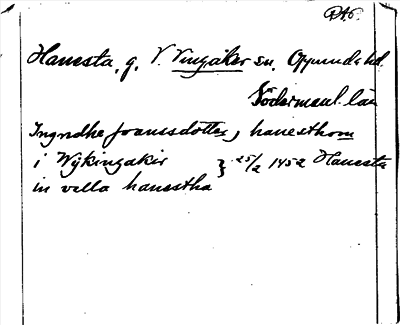 RA6.
Hanesta, g. V. Vingåker sn. Oppunda hd.
Södermanl. län
Ingridhe Joanssdotter, hanesthom
i Wykingakir } 25/2 1452 Hanesta
in villa hanestha